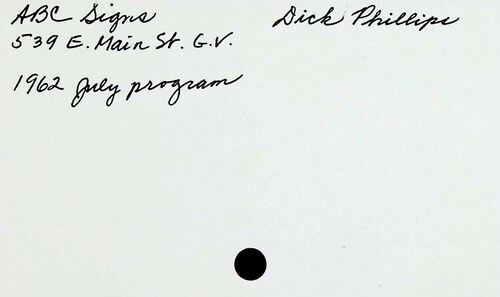 ABC Signs Dick Phillips
539 E. Main St. G.V.
1962 July program